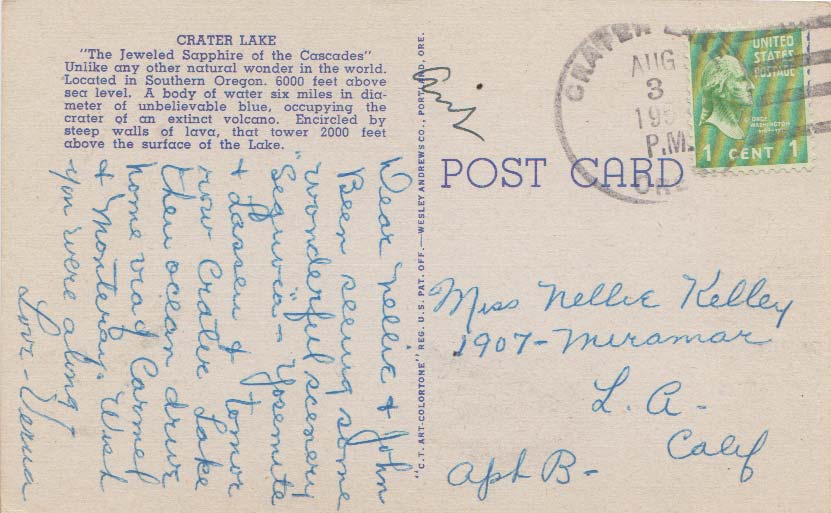 CRATER LAKE
"The Jeweled Sapphire of the Cascades"
Unlike any other natural wonder in the world.
Located in Southern Oregon. 6000 feet above
sea level. A body of water six miles in dia-
meter of unbelievable blue, occupying the
crater of an extinct volcano. Encircled by
steep walls of lava, that tower 2000 feet
above the surface of the Lake.
Dear Nellie & John
Been seeing some
wonderful scenery
"Sequoia" - Yosemite
& Lassen &
now Crater Lake
then ocean drive
home via Carmel
& Monteray. Wish
you were along
Love - Verna
"C.T. ART-COLORTONE" REG. U.S. PAT. OFF.—WESLEY ANDREWS CO., PORTLAND, ORE.
POST CARD
CRATER
AUG
3
P.M.
UNITED
STATES
POSTAGE
GEORGE
WASHINGTON
1 CENT 1
Miss Nellie Kelley
1907 - Miramar
L. A. -
Calif
Apt B -